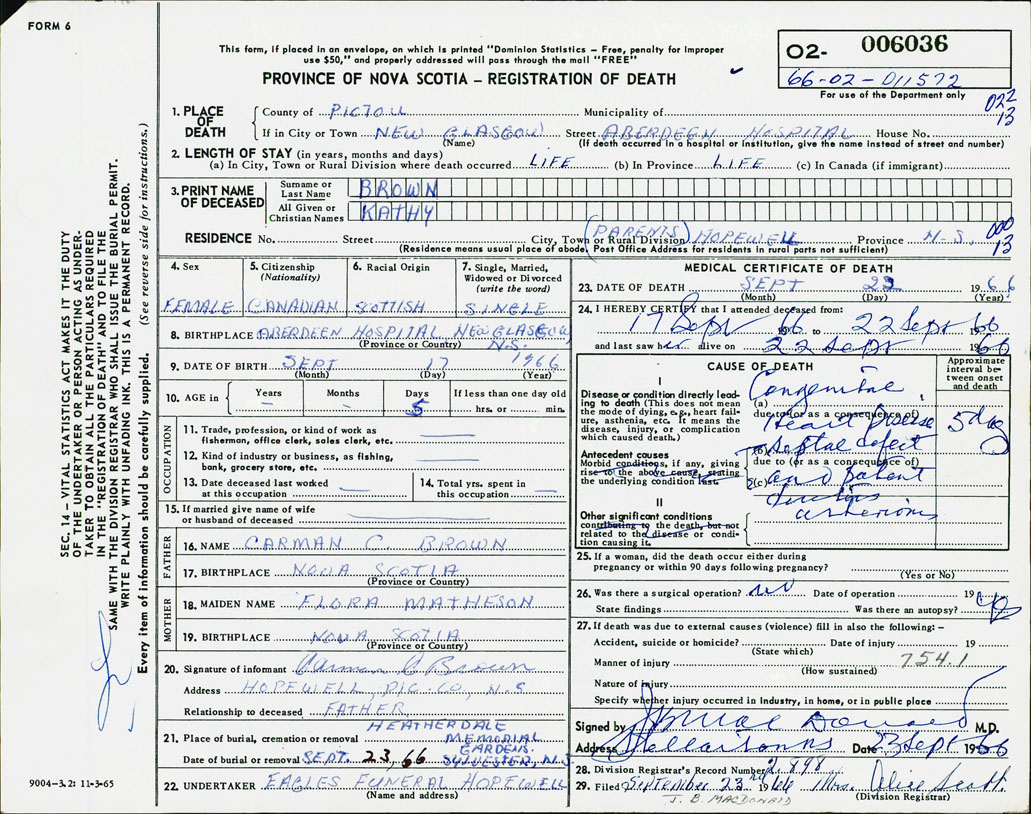 FORM 6
This form, if placed in an envelope, on which is printed "Dominion Statistics – Free, penalty for improper
use $50," and properly addressed will pass through the mail "FREE"
PROVINCE OF NOVA SCOTIA – REGISTRATION OF DEATH
02- 006036
66-02-011572
For use of the Department only
022
13
1. PLACE OF DEATH
County of PICTOU Municipality of
If in City or Town NEW GLASGOW Street ABERDEEN HOSPITAL House No.
(Name) (If death occurred in a hospital or institution, give the name instead of street and number)
2. LENGTH OF STAY (in years, months and days)
(a) In City, Town or Rural Division where death occurred LIFE (b) In Province LIFE (c) In Canada (if immigrant)
3. PRINT NAME OF DECEASED
Surname or Last Name BROWN
All Given or Christian Names KATHY
RESIDENCE No. Street City, Town or Rural Division (PARENTS) HOPEWELL Province N.S.
000
13
(Residence means usual place of abode. Post Office Address for residents in rural parts not sufficient)
4. Sex FEMALE
5. Citizenship (Nationality) CANADIAN
6. Racial Origin SCOTTISH
7. Single, Married, Widowed or Divorced (write the word) SINGLE
8. BIRTHPLACE ABERDEEN HOSPITAL NEW GLASGOW N.S.
(Province or Country)
9. DATE OF BIRTH SEPT 17 1966
(Month) (Day) (Year)
10. AGE in Years – Months – Days 5 If less than one day old hrs. or min.
OCCUPATION
11. Trade, profession, or kind of work as
fisherman, office clerk, sales clerk, etc.
12. Kind of industry or business, as fishing,
bank, grocery store, etc.
13. Date deceased last worked
at this occupation
14. Total yrs. spent in
this occupation
15. If married give name of wife
or husband of deceased
FATHER
16. NAME CARMAN C. BROWN
17. BIRTHPLACE NOVA SCOTIA
(Province or Country)
MOTHER
18. MAIDEN NAME FLORA MATHESON
19. BIRTHPLACE NOVA SCOTIA
(Province or Country)
20. Signature of informant Carman C Brown
Address HOPEWELL, PIC. CO, N.S
Relationship to deceased FATHER
21. Place of burial, cremation or removal HEATHERDALE MEMORIAL GARDENS. SYLVESTER, N.S.
Date of burial or removal SEPT. 23, 66
22. UNDERTAKER EAGLES FUNERAL HOPEWELL
(Name and address)
MEDICAL CERTIFICATE OF DEATH
23. DATE OF DEATH SEPT 22 1966
(Month) (Day) (Year)
24. I HEREBY CERTIFY that I attended deceased from:
17 Sept 1966 to 22 Sept 1966
and last saw her alive on 22 Sept 1966
CAUSE OF DEATH
Approximate interval between onset and death
I
Disease or condition directly leading to death (This does not mean the mode of dying, e.g., heart failure, asthenia, etc. It means the disease, injury, or complication which caused death.)
(a) Congenital
due to (or as a consequence of)
Heart Disease 5 day
Antecedent causes
Morbid conditions, if any, giving rise to the above cause, stating the underlying condition last.
(b) Septal defect
due to (or as a consequence of)
(c) and Patent
ductus
arteriosus
II
Other significant conditions
contributing to the death, but not related to the disease or condition causing it.
25. If a woman, did the death occur either during
pregnancy or within 90 days following pregnancy?
(Yes or No)
26. Was there a surgical operation? no Date of operation 19
State findings Was there an autopsy?
27. If death was due to external causes (violence) fill in also the following: –
Accident, suicide or homicide? Date of injury 19
(State which)
Manner of injury 754.1
(How sustained)
Nature of injury
Specify whether injury occurred in Industry, in home, or in public place
Signed by MacDonald M.D.
Address Stellarton NS Date 23 Sept 1966
28. Division Registrar's Record Number 2,898
29. Filed September 23rd 1966 Mrs. Alice Scott
(Division Registrar)
J. B. MACDONALD
SEC. 14 – VITAL STATISTICS ACT MAKES IT THE DUTY
OF THE UNDERTAKER OR PERSON ACTING AS UNDER-
TAKER TO OBTAIN ALL THE PARTICULARS REQUIRED
IN THE "REGISTRATION OF DEATH" AND TO FILE THE
SAME WITH THE DIVISION REGISTRAR WHO SHALL ISSUE THE BURIAL PERMIT.
WRITE PLAINLY WITH UNFADING INK. THIS IS A PERMANENT RECORD.
Every item of information should be carefully supplied. (See reverse side for instructions.)
9004–3.2: 11-3-65